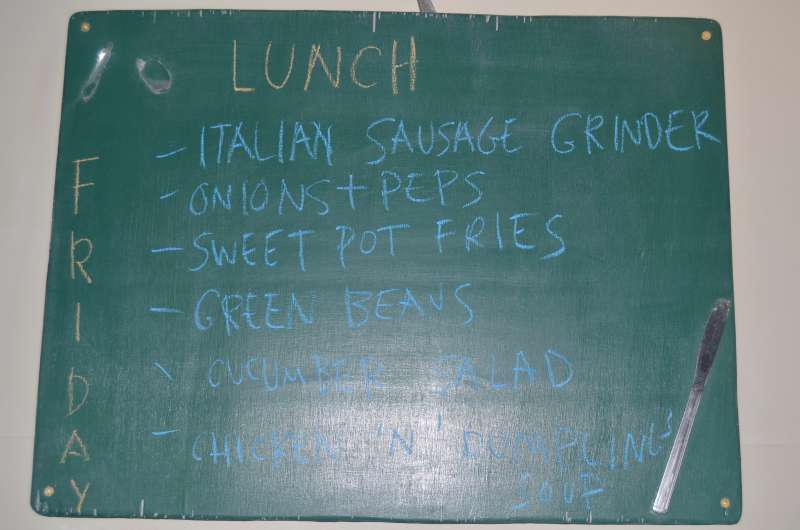 LUNCH
FRIDAY
- ITALIAN SAUSAGE GRINDER
- ONIONS + PEPS
- SWEET POT FRIES
- GREEN BEANS
- CUCUMBER SALAD
- CHICKEN 'N' DUMPLING'S
SOUP